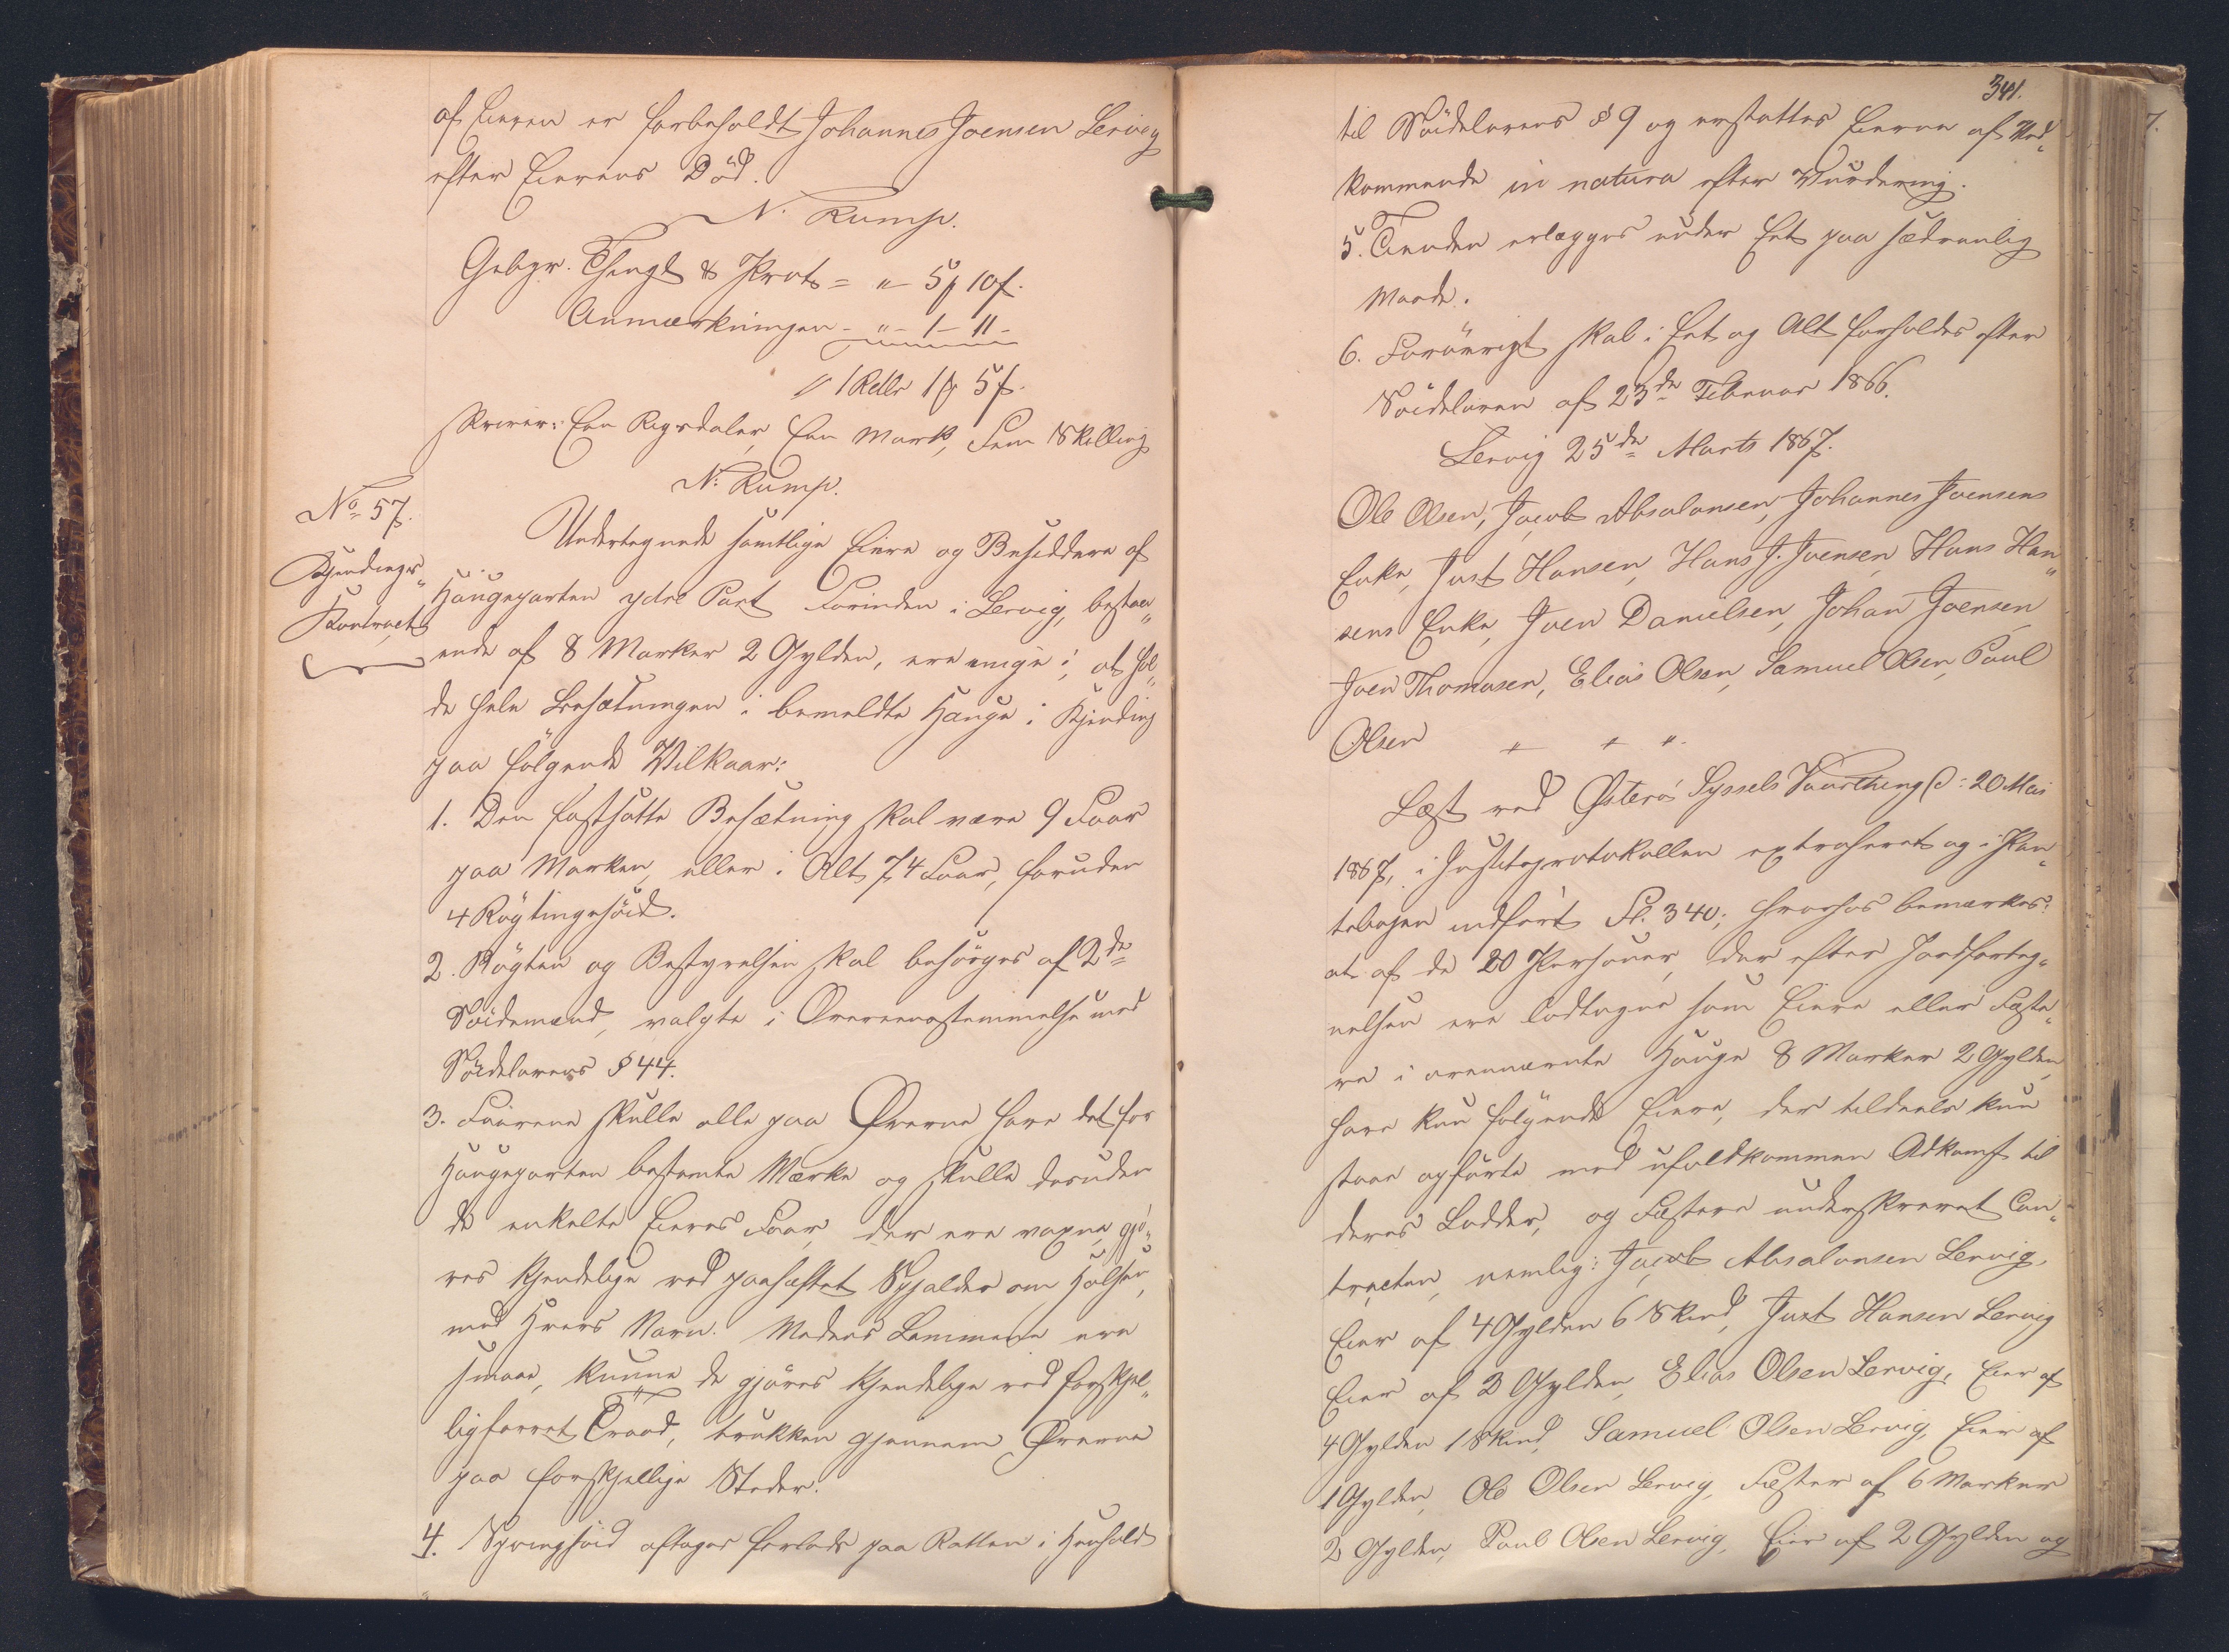 af Eieren er forbeholdt Johannes Joensen Lervig
efter Eierens Död.
N. Rump.
Gebyr. Thingl & Prot = " 5 ₰ 10 ſ.
Anmærkningen - " - 1 - 11 -
1 Rdlr 1 ₰ 5 ſ.
skriver: Een Rigsdaler, Een Mark, Fem Skilling
N. Rump.
No 57.
Kjendings-
Kontract
Undertegnede samtlige Eiere og Besiddere af
Haugeparten ydre Part Forinden i Lervig, bestaa-
ende af 8 Marker 2 Gylden, ere enige i, at hol-
de hele Besætningen i bemeldte Hauge i Kjending
paa følgende Vilkaar:
1. Den fastsatte Besætning skal være 9 Faar
paa Marken, eller i Alt 74 Faar, foruden
4 Røgtingsöid.
2. Røgten og Bestyrelsen skal besörges af 2de
Söidemænd, valgte i Overeensstemmelse med
Söidelovens § 44.
3. Faarene skulle alle paa Ørerne have det for
Haugeparten bestemte Mærke og skulle desuden
de enkelte Eieres Faar, der ere voxne, gjö-
res kjendelige ved paahæftet Spjalder om Halsen,
med Hvers Navn. Medens Lammene ere
smaae, kunne de gjöres kjendelige ved forskjel-
ligfarvet Traad, trukken gjennem Ørerne
paa forskjellige Steder.
4. Springsöid aftages forlods paa Retten i Henhold
341.
til Söidelovens § 9 og erstattes Eieren af Ved-
kommende in natura efter Vurdering.
5. Tienden erlægges under Eet paa sædvanlig
Maade.
6. Forövrigt skal i Eet og Alt forholdes efter
Söideloven af 23de Februar 1866.
Lervig 25de Marts 1867.
Ole Olsen, Jacob Absalonsen, Johannes Joensens
Enke, Just Hansen, Hans J. Joensen, Hans Han-
sens Enke, Joen Danielsen, Johan Joensen,
Joen Thomasen, Elias Olsen, Samuel Olsen, Poul
Olsen " " "
Læst ved Østerö Syssels Vaarthing d: 20 Mai
1867, i Justitsprotokollen extraheret og i Pan-
tebogen indfört Fl. 340; hvorhos bemærkes:
at af de 20 Personer, der efter Jordforteg-
nelsen ere lodtagne som Eiere eller Fæste-
re i ovennævnte Hauge 8 Marker 2 Gylden,
have kun følgende Eiere, der tildeels kun
staae opförte med ufuldkommen Adkomst til
deres Lodder, og Fæstere underskrevet Con-
tracten, nemlig: Jacob Absalonsen Lervig,
Eier af 4 Gylden 6 Skind, Just Hansen Lervig
Eier af 3 Gylden, Elias Olsen Lervig, Eier af
4 Gylden 1 Skind, Samuel Olsen Lervig, Eier af
1 Gylden, Ole Olsen Lervig, Fæster af 6 Marker
2 Gylden, Poul Olsen Lervig, Eier af 2 Gylden og